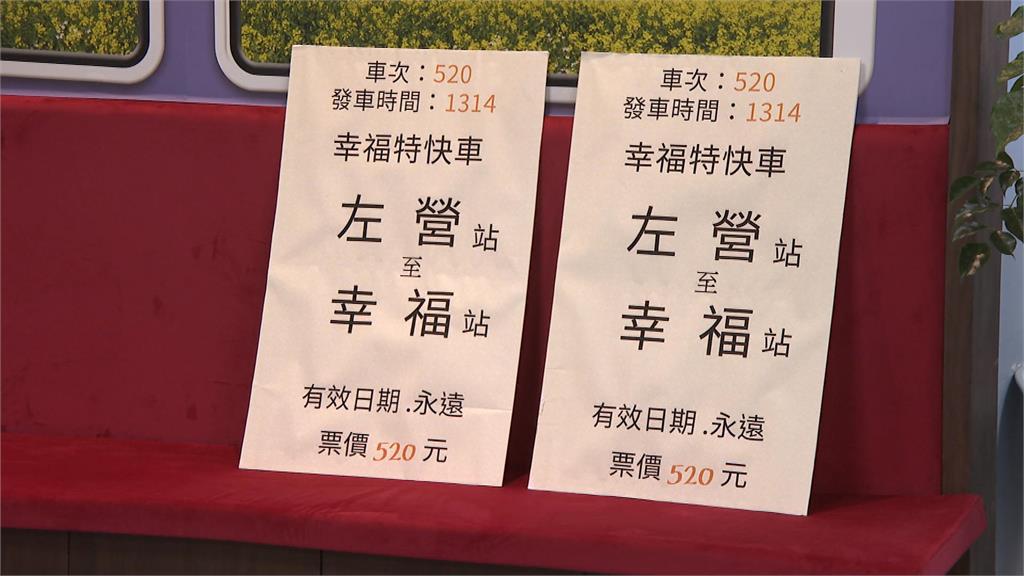 車次：520
發車時間：1314
幸福特快車
左營站
至
幸福站
有效日期.永遠
票價 520 元
車次：520
發車時間：1314
幸福特快車
左營站
至
幸福站
有效日期.永遠
票價 520 元